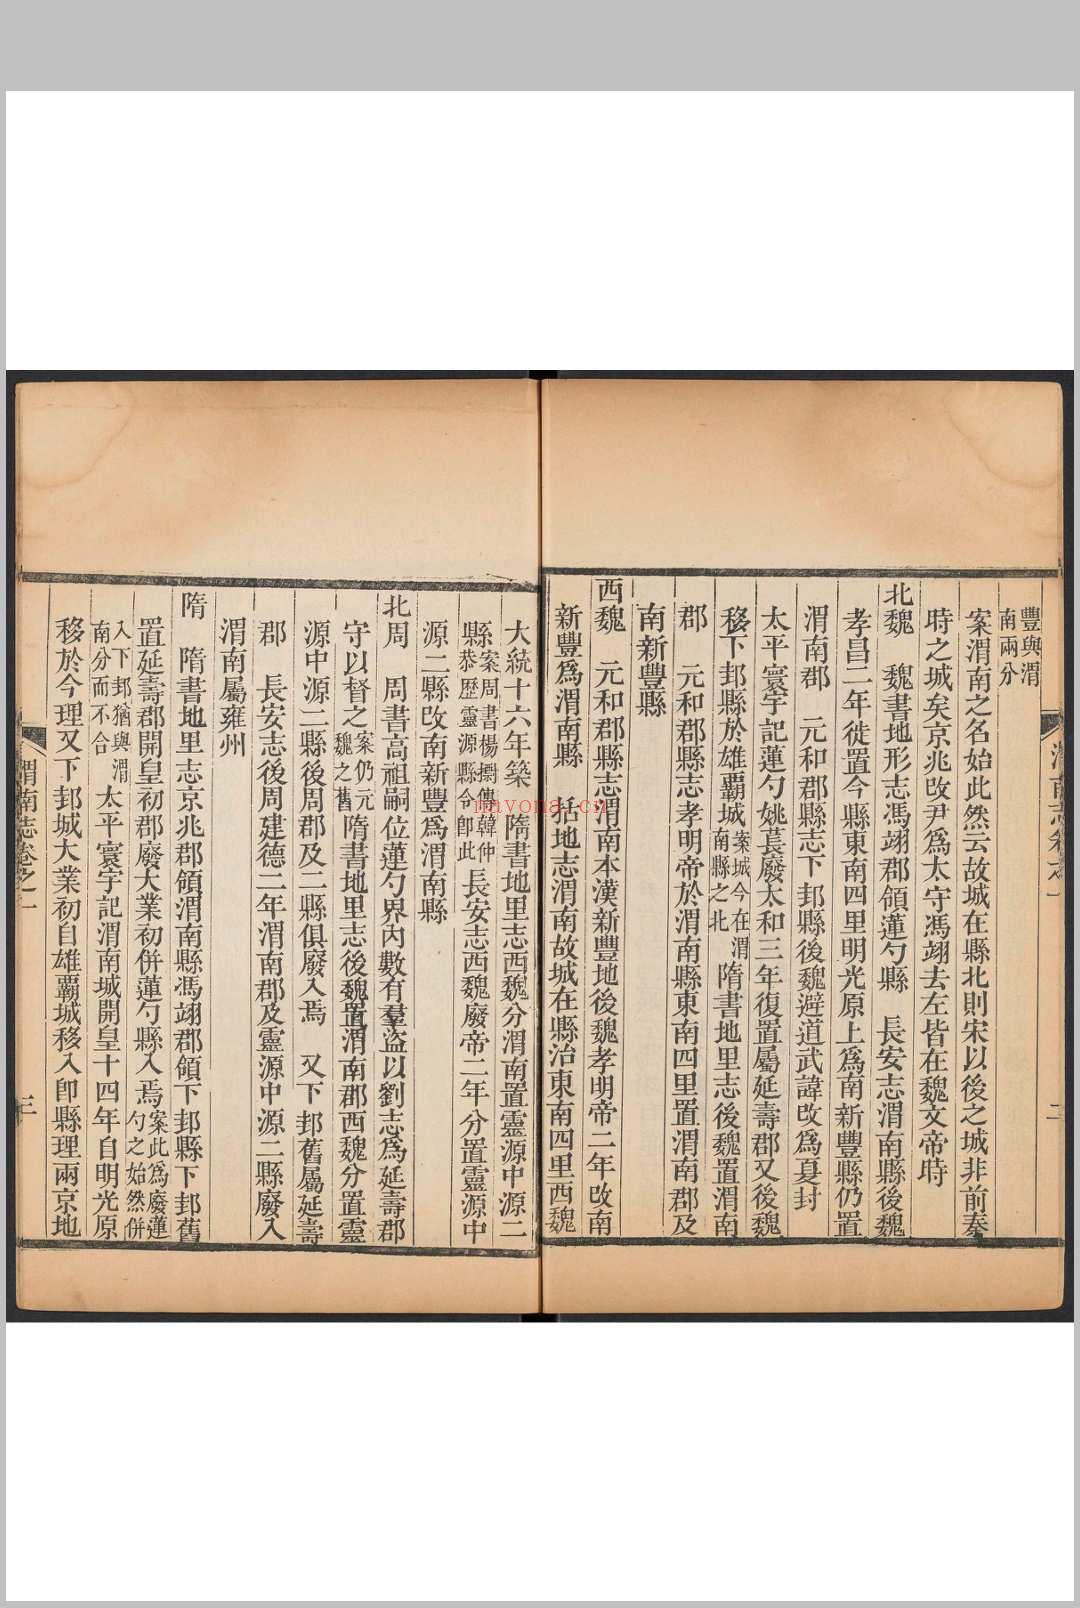 渭南志卷之一
二
豐與渭
南兩分
案渭南之名始此然云故城在縣北則宋以後之城非前秦
時之城矣京兆改尹爲太守馮翊去左皆在魏文帝時
北魏　魏書地形志馮翊郡領蓮勺縣　長安志渭南縣後魏
孝昌二年徙置今縣東南四里明光原上爲南新豐縣仍置
渭南郡　元和郡縣志下邽縣後魏避道武諱改爲夏封
太平寰宇記蓮勺姚萇廢太和三年復置屬延壽郡又後魏
移下邽縣於雄霸城案城今在渭南縣之北　隋書地里志後魏置渭南
郡　元和郡縣志孝明帝於渭南縣東南四里置渭南郡及
南新豐縣
西魏　元和郡縣志渭南本漢新豐地後魏孝明帝二年改南
新豐爲渭南縣　括地志渭南故城在縣治東南四里西魏
大統十六年築　隋書地里志西魏分渭南置靈源中源二
縣案周書楊㩉傳韓仲恭歷靈源縣令卽此　長安志西魏廢帝二年分置靈源中
源二縣改南新豐爲渭南縣
北周　周書高祖嗣位蓮勺界內數有羣盜以劉志爲延壽郡
守以督之案仍元魏之舊　隋書地里志後魏置渭南郡西魏分置靈
源中源二縣後周郡及二縣俱廢入焉　又下邽舊屬延壽
郡　長安志後周建德二年渭南郡及靈源中源二縣廢入
渭南屬雍州
隋　隋書地里志京兆郡領渭南縣馮翊郡領下邽縣下邽舊
置延壽郡開皇初郡廢大業初併蓮勺縣入焉案此爲廢蓮勺之始然併
入下邽猶與渭南分而不合　太平寰宇記渭南城開皇十四年自明光原
移於今理又下邽城大業初自雄霸城移入卽縣理兩京地
渭南志卷之一
三
nayona.cn